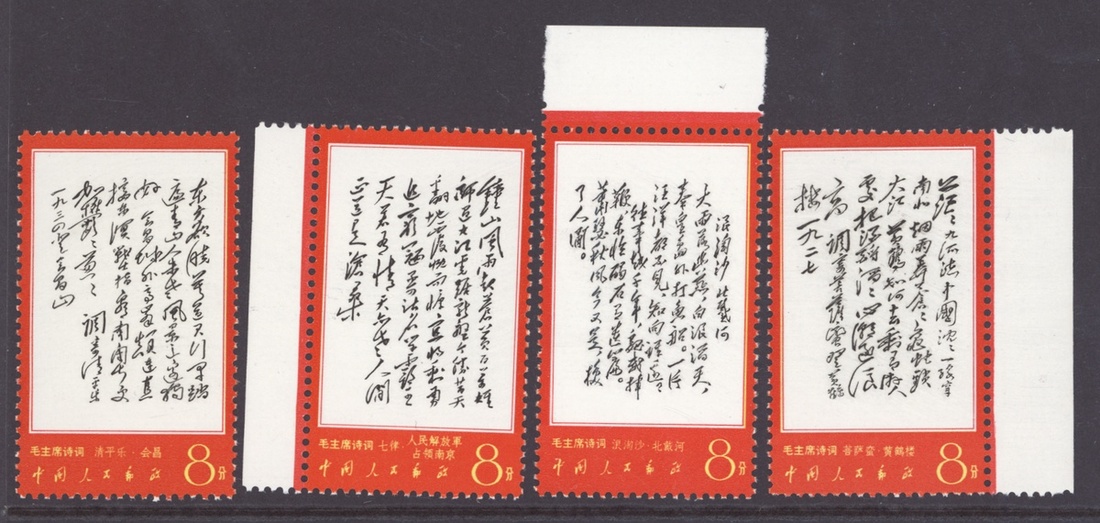 东方欲晓莫道君行早踏
遍青山人未老风景这边独
好 会昌城外高峰颠连直
接东溟战士指看南粤更
加郁郁葱葱 调寄清平乐
一九三四年登会昌山
毛主席诗词 清平乐·会昌
中国人民邮政
8分
鍾山風雨起蒼黄百万雄
師过大江虎踞龍盤今勝昔天
翻地覆慨而慷宜将剩勇
追窮寇不可沽名学霸王
天若有情天亦老人间
正道是滄桑
毛主席诗词 七律·人民解放軍
占领南京
中国人民邮政
8分
浪淘沙 北戴河
大雨落幽燕，白浪滔天，
秦皇島外打魚船。一片
汪洋都不見，知向谁邊？
往事越千年，魏武揮
鞭，东临碣石有遗篇。
蕭瑟秋風今又是，换
了人间。
毛主席诗词 浪淘沙·北戴河
中国人民邮政
8分
茫茫九派流中國沈沈一线穿
南北烟雨莽苍苍龟蛇锁
大江 黄鹤知何去剩有游人
处把酒酹滔滔心潮逐浪
高 调寄菩萨蛮登黄鹤
楼 一九二七
毛主席诗词 菩萨蛮·黄鹤楼
中国人民邮政
8分